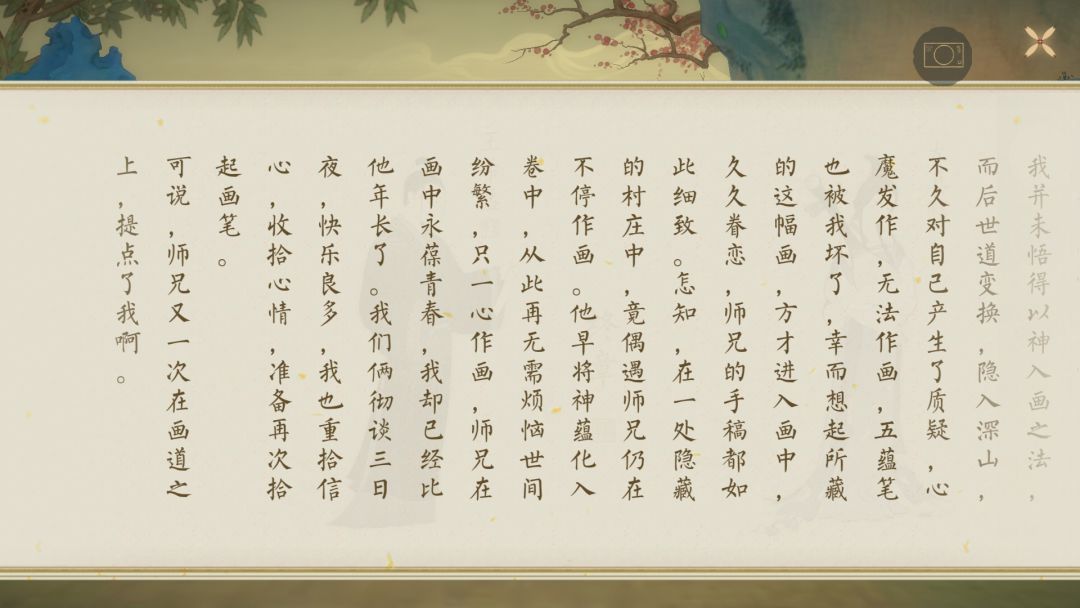 我并未悟得以神入画之法，
而后世道变换，隐入深山，
不久对自己产生了质疑，心
魔发作，无法作画，五蕴笔
也被我坏了，幸而想起所藏
的这幅画，方才进入画中，
久久眷恋，师兄的手稿都如
此细致。怎知，在一处隐藏
的村庄中，竟偶遇师兄仍在
不停作画。他早将神蕴化入
卷中，从此再无需烦恼世间
纷繁，只一心作画，师兄在
画中永葆青春，我却已经比
他年长了。我们俩彻谈三日
夜，快乐良多，我也重拾信
心，收拾心情，准备再次拾
起画笔。
可说，师兄又一次在画道之
上，提点了我啊。